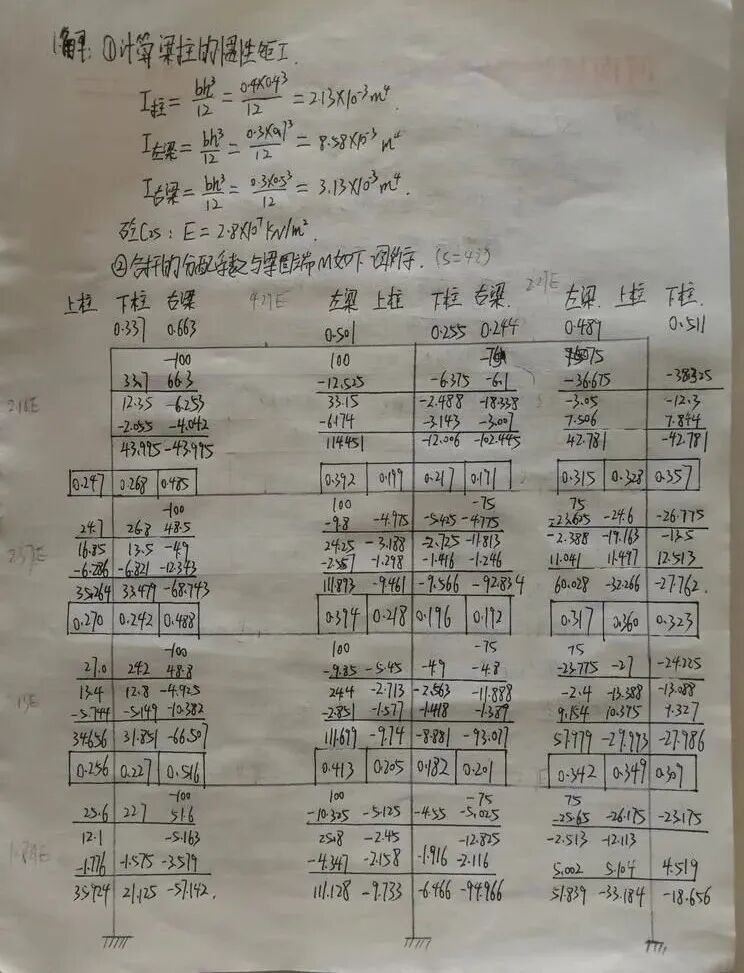 1.解: ①计算梁柱的惯性矩I.
I柱=bh³/12=0.4×0.4³/12=2.13×10⁻³m⁴.
I左梁=bh³/12=0.3×0.7³/12=8.58×10⁻³m⁴
I右梁=bh³/12=0.3×0.5³/12=3.13×10⁻³m⁴.
砼C25: E=2.8×10⁷KN/m².
②各杆的分配系数与梁固端M如下图所示. (S=42)
上柱 下柱 右梁 4.27E 左梁 上柱 下柱 右梁. 2.27E 左梁. 上柱. 下柱.
0.337 0.663 0.501 0.255 0.244 0.489 0.511
-100 100 75
33.7 66.3 -12.525 -6.375 -6.1 -36.675 -38.325
2.16E 12.35 -6.253 33.15 -2.488 -18.338 -3.05 -12.3
-2.055 -4.042 -6.174 -3.143 -3.007 7.506 7.844
43.995 -43.995 114.451 -12.006 -102.445 42.781 -42.781
0.247 0.268 0.485 0.392 0.199 0.217 0.191 0.315 0.328 0.357
-100 100 -75 75
24.7 26.8 48.5 -9.8 -4.975 -5.425 -4.775 -23.625 -24.6 -26.775
16.85 13.5 -4.9 24.25 -3.188 -2.725 -11.813 -2.388 -19.163 -13.5
-6.286 -6.821 -12.343 -2.557 -1.298 -1.416 -1.246 11.041 11.497 12.513
35.264 33.479 -68.743 111.893 -9.461 -9.566 -92.834 60.028 -32.266 -27.762.
0.270 0.242 0.488 0.394 0.218 0.196 0.192 0.317 0.360 0.323
-100 100 -75 75
27.0 24.2 48.8 -9.85 -5.45 -4.9 -4.8 -23.775 -27 -24.225
13.4 12.8 -4.925 24.4 -2.713 -2.563 -11.888 -2.4 -13.388 -13.088
-5.744 -5.149 -10.382 -2.851 -1.577 -1.418 -1.389 9.154 10.375 9.327
34.656 31.851 -66.507 111.699 -9.74 -8.881 -93.077 57.979 -29.993 -27.986
0.256 0.227 0.516 0.413 0.205 0.182 0.201 0.342 0.349 0.309
-100 100 -75 75
25.6 22.7 51.6 -10.325 -5.125 -4.55 -5.025 -25.65 -26.175 -23.175
12.1 -5.163 25.8 -2.45 -12.825 -2.513 -12.113
-1.776 -1.575 -3.579 -4.347 -2.158 -1.916 -2.116 5.002 5.104 4.519
35.924 21.125 -57.142. 111.128 -9.733 -6.466 -94.966 51.839 -33.184 -18.656